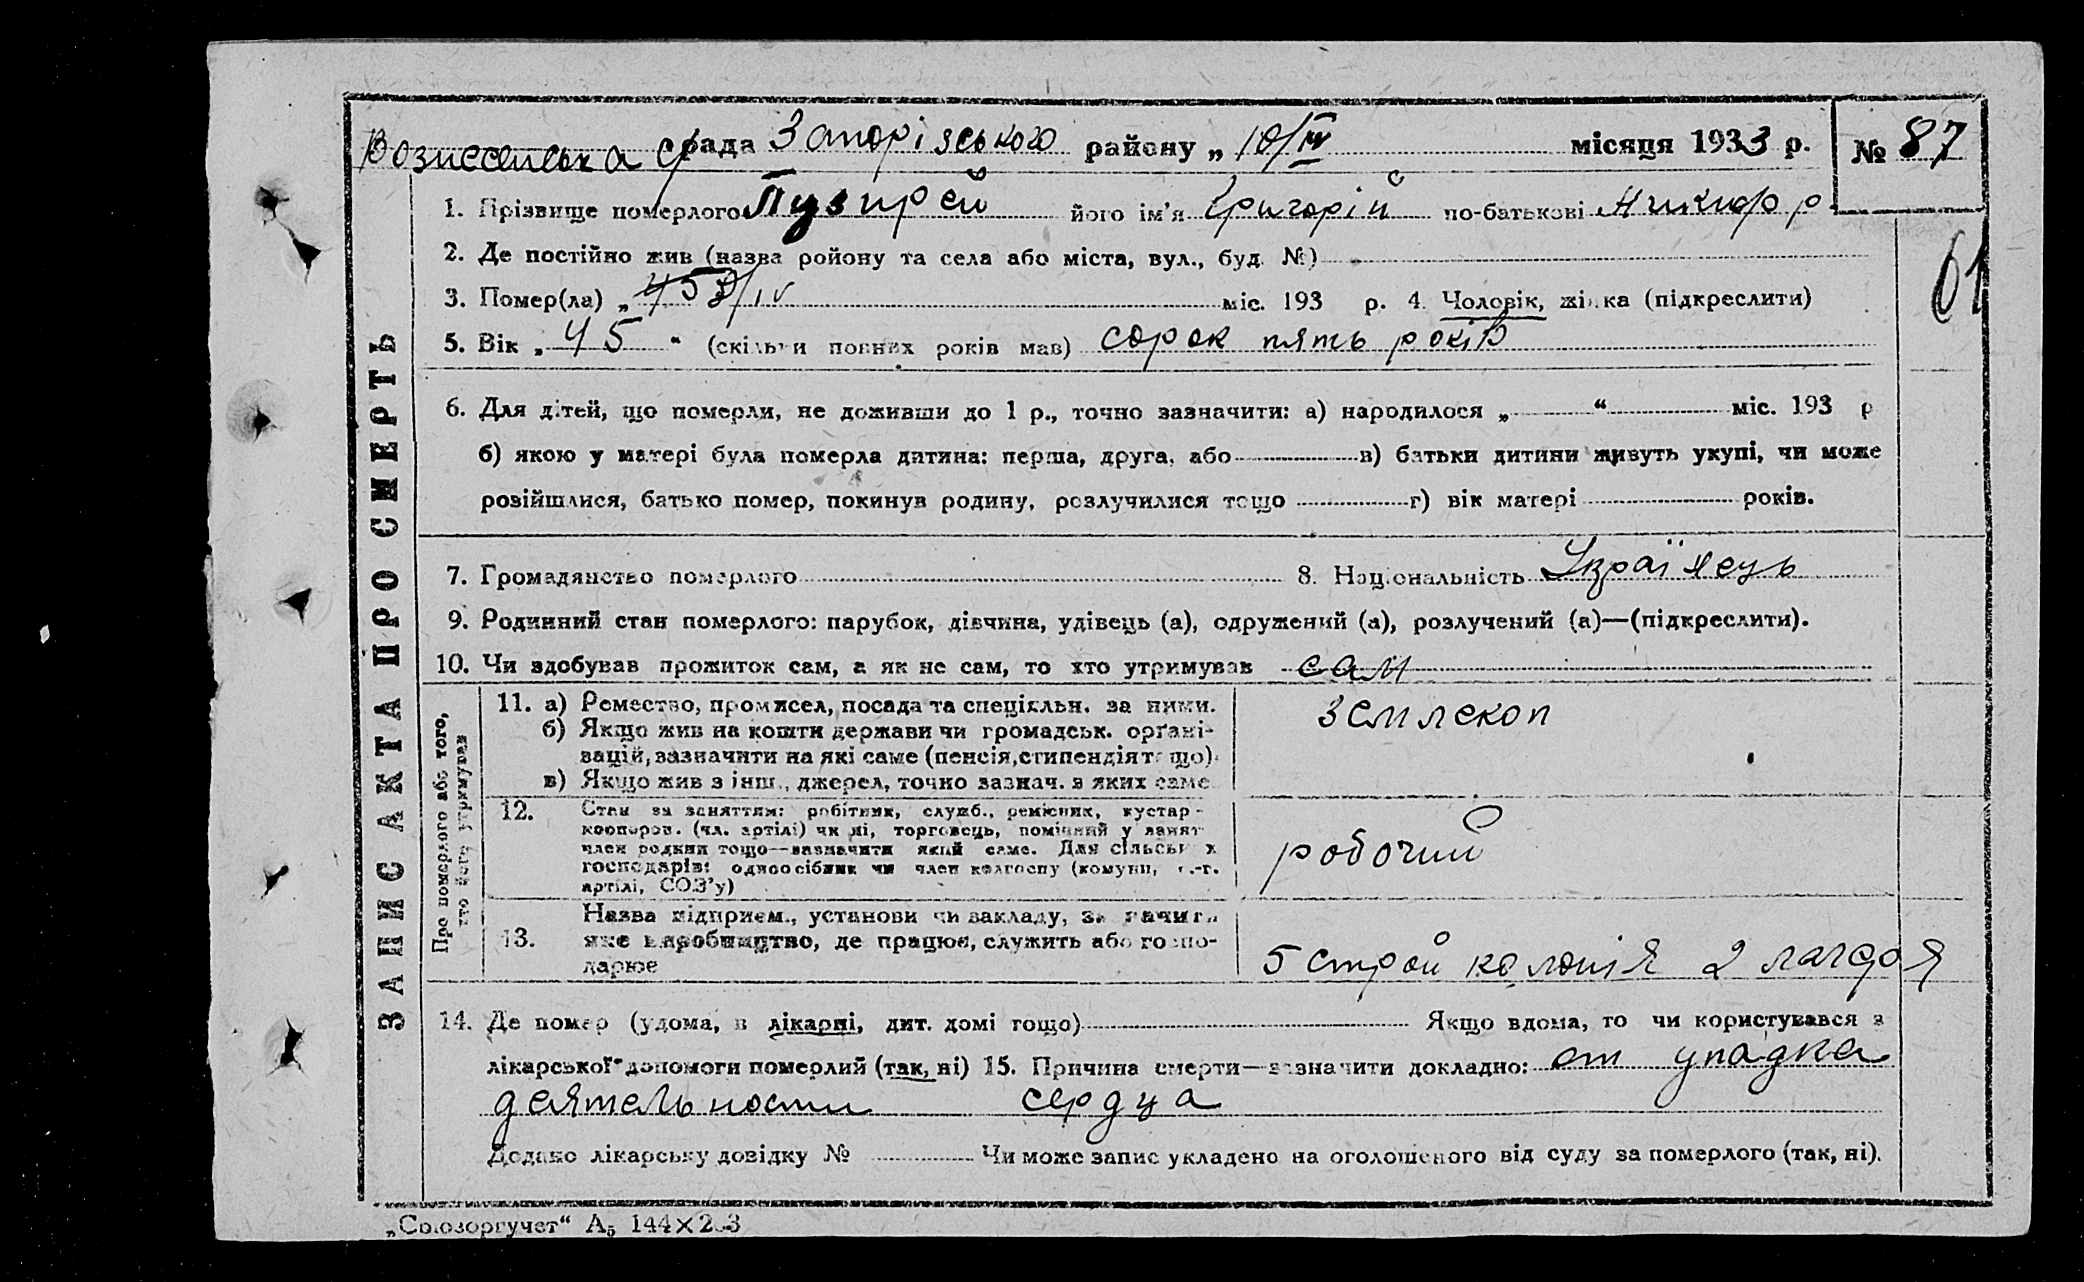 Вознесенська с/рада Запорізського району „ 10/IV місяця 1933 р. № 87
1. Прізвище померлого Пузирей його ім'я Григорій по-батькові Никифор
61
2. Де постійно жив (назва ройону та села або міста, вул., буд. №)
3. Помер(ла) „ /IV міс. 193 р. 4. Чоловік, жінка (підкреслити)
5. Вік „ 45 “ (скільки повних років мав) сорок пять років
6. Для дітей, що померли, не доживши до 1 р., точно зазначити: а) народилося „ “ міс. 193 р
б) якою у матері була померла дитина: перша, друга, або в) батьки дитини живуть укупі, чи може
розійшлися, батько помер, покинув родину, розлучилися тощо г) вік матері років.
7. Громадянство померлого 8. Національність Україяець
9. Родинний стан померлого: парубок, дівчина, удівець (а), одружений (а), розлучений (а)—(підкреслити).
10. Чи здобував прожиток сам, а як не сам, то хто утримував сам
ЗАПИС АКТА ПРО СМЕРТЬ
Про померлого або того, хто його утримував
11. а) Ремество, промисел, посада та спеціяльн. за ними. Землекоп
б) Якщо жив на кошти держави чи громадськ. органі-
зацій, зазначити на які саме (пенсія, стипендія тощо).
в) Якщо жив з інш., джерел, точно зазнач. з яких саме
12. Стан за заняттям: робітник, служб., ремісник, кустар-
кооперов. (чл. артілі) чи ні, торговець, помічний у занят
член родини тощо—зазначити який саме. Для сільських
господарів: одноосібник чи член колгоспу (комуни, с.-г.
артілі, СОЗ'у) робочий
Назва підприєм., установи чи закладу, зазначити
13. яке виробництво, де працює, служить або госпо-
дарює 5 строй колонія 2
14. Де помер (удома, в лікарні, дит. домі тощо) Якщо вдома, то чи користувався з
лікарської допомоги померлий (так, ні) 15. Причина смерти—зазначити докладно: от упадка
деятельности сердца
Додано лікарську довідку № Чи може запис укладено на оголошеного від суду за померлого (так, ні).
„Союзоргучет“ А₅ 144×203